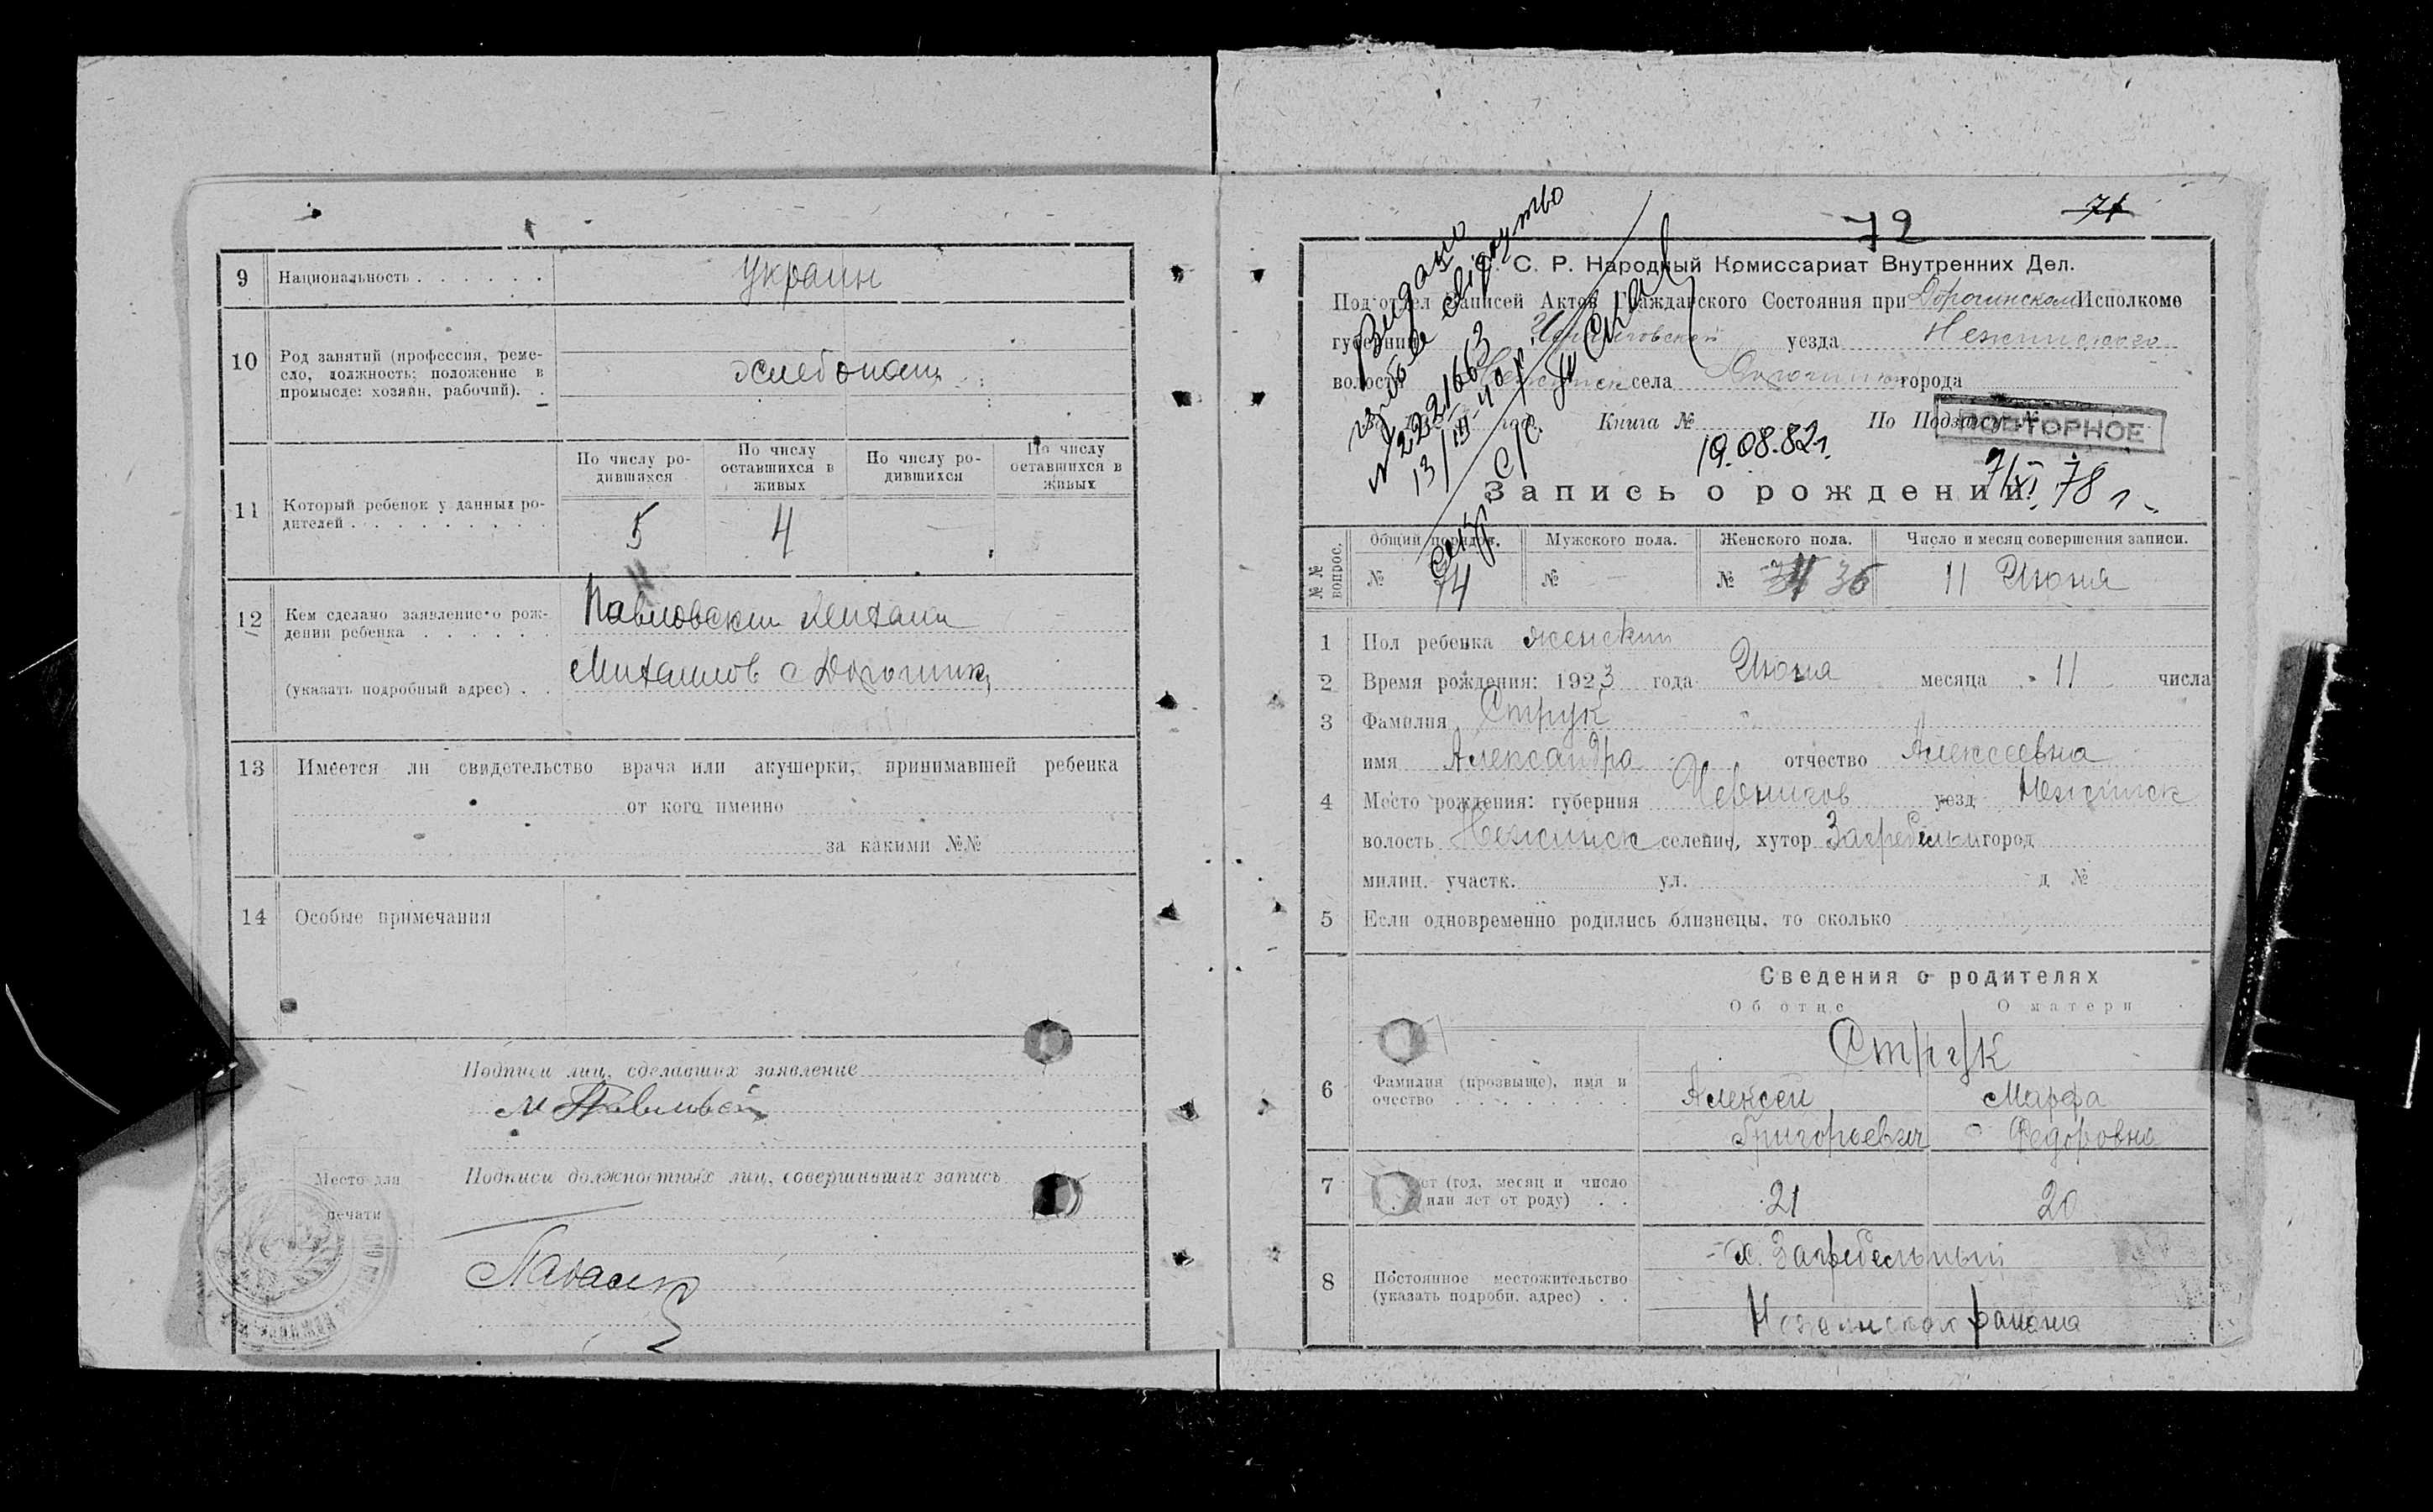 9 Национальность . . . . . . украин
10 Род занятий (профессия, реме-
сло, должность; положение в
промысле: хозяин, рабочий). .
хлебопаш
По числу ро-
дившихся
По числу
оставшихся в
живых
По числу ро-
дившихся
По числу
оставшихся в
живых
11 Который ребенок у данных ро-
дителей . . . . . . . . .
5 4
12 Кем сделано заявление о рож-
дении ребенка . . . . . .
Павловским Михаил
(указать подробный адрес) . .
Михаилов с Дорогинка
13 Имеется ли свидетельство врача или акушерки, принимавшей ребенка
от кого именно
за какими №№
14 Особые примечания
Подписи лиц, сделавших заявление
М Павловс
Место для
печати
Подписи должностных лиц, совершивших запись
72 71
С. Р. Народный Комиссариат Внутренних Дел.
Подотдел Записей Актов Гражданского Состояния при Дорогинском Исполкоме
губернии Черниговской уезда Нежинского
волости Нежинск села города
Видано
повторне свідоцтво
N 2221663
13/III-40 р.
Секр. С/с.
года Книга № По Подзагсу №
ПОВТОРНОЕ
19.08.82г.
7/XI.78 г.
Запись о рождении
№№ вопрос.
Общий порядок. Мужского пола. Женского пола. Число и месяц совершения записи.
№ 74 № — № 34 36 11 Июня
1 Пол ребенка женский
2 Время рождения: 1923 года Июня месяца 11 числа
3 Фамилия Струк
имя Александра отчество Алексеевна
4 Место рождения: губерния Чернигов уезд Нежинск
волость Нежинск селение, хутор Загребельный город
милиц. участк. ул. д №
5 Если одновременно родились близнецы, то сколько
Сведения о родителях
Об отце О матери
Струк
6 Фамилия (прозвище), имя и
очество . . . . . . . . .
Алексей Марфа
Григорьевич Федоровна
7 (год, месяц и число
или лет от роду) . .
21 20
8 Постоянное местожительство
(указать подробн. адрес) . .
х. Загребельный
Нежинскок района